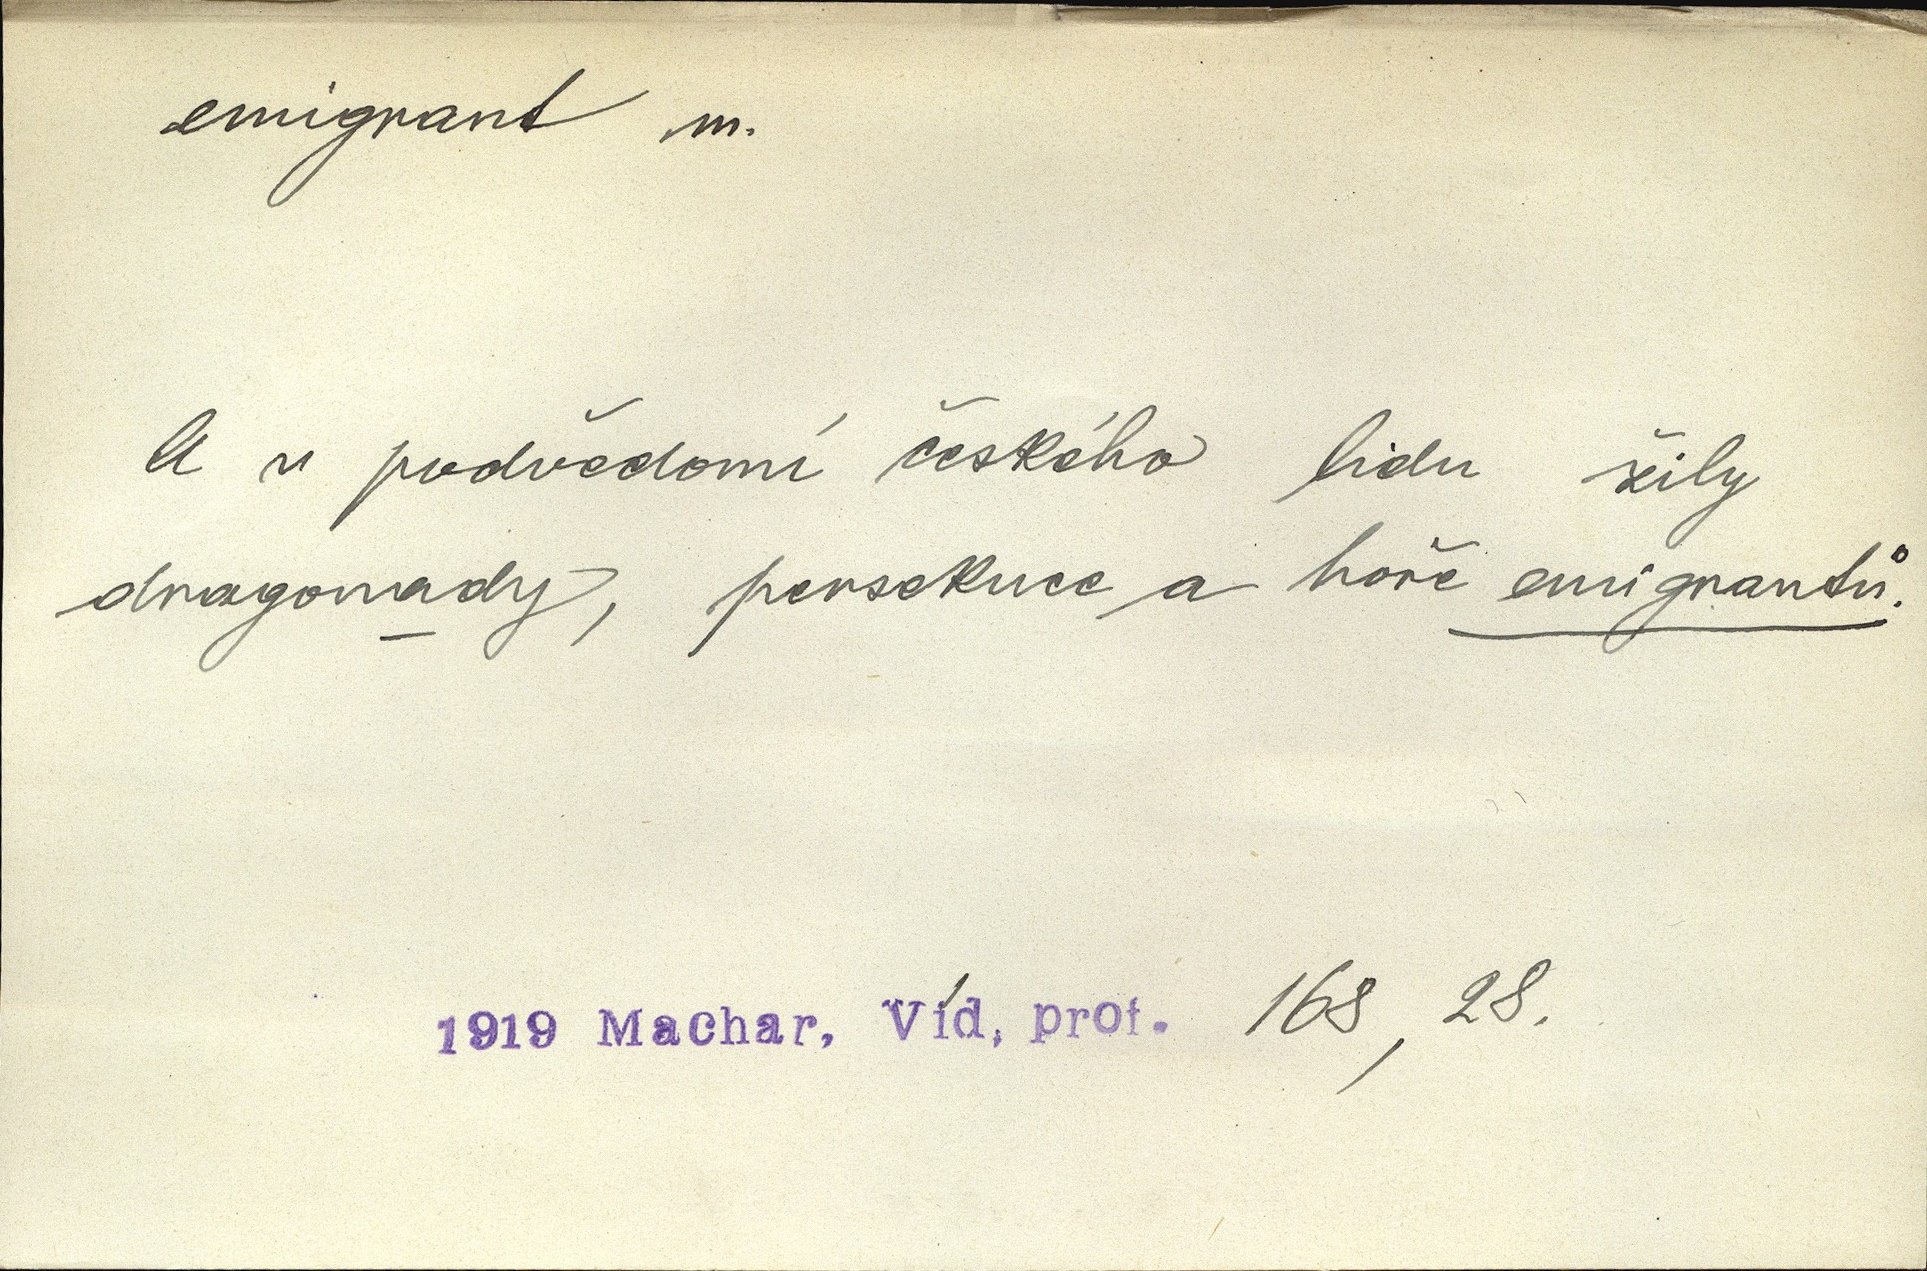 emigrant m.
A v podvědomí českého lidu žily
dragonady, persekuce a hoře emigrantů.
1919 Machar, Víd, prot. 168, 28.